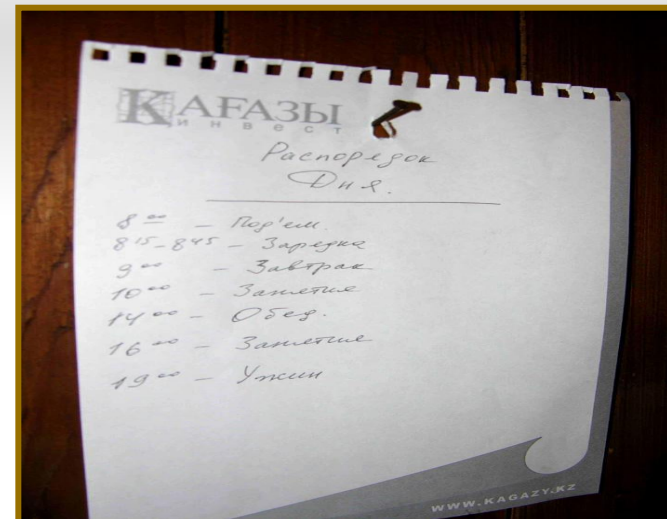 КАҒАЗЫ
ИНВЕСТ
Распорядок
Дня.
8 00 – Под'ем.
8 15 – 8 45 – Зарядка
9 00 – Завтрак
10 00 – Занятие
14 00 – Обед.
16 00 – Занятие
19 00 – Ужин
WWW.KAGAZY.KZ